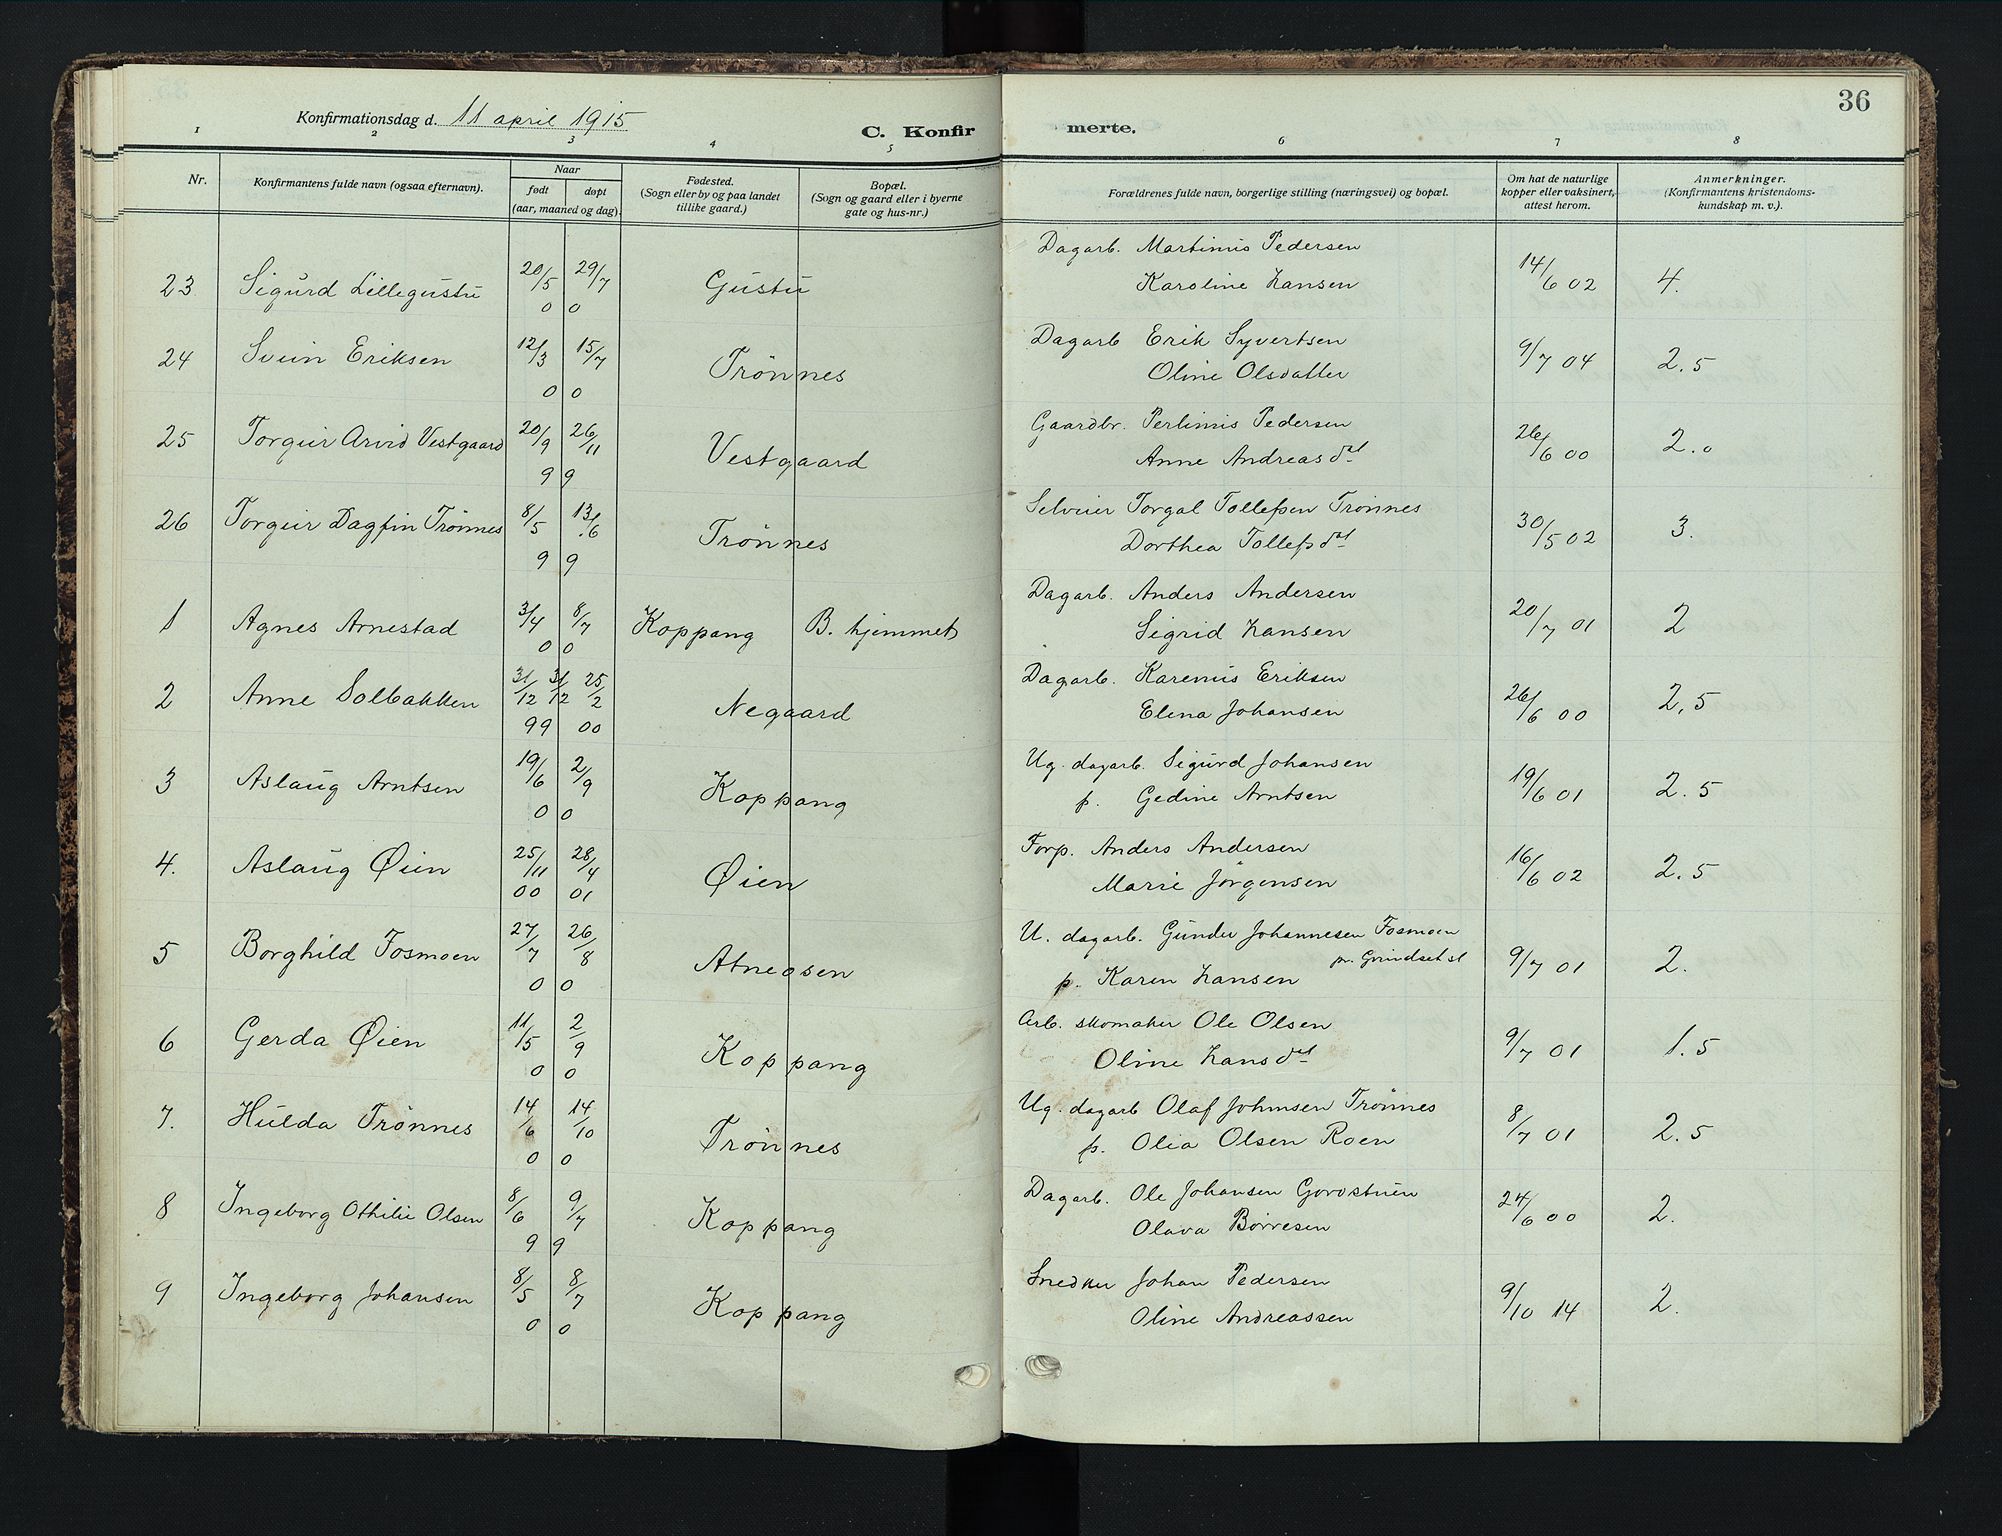 36
Konfirmationsdag d. 11 april 1915
C. Konfir merte.
1 2 3 4 5 6 7 8
Nr. Konfirmantens fulde navn (ogsaa efternavn). Naar født døpt (aar, maaned og dag) Fødested. (Sogn eller by og paa landet tillike gaard.) Bopæl. (Sogn og gaard eller i byerne gate og hus-nr.) Forældrenes fulde navn, borgerlige stilling (næringsvei) og bopæl. Om hat de naturlige kopper eller vaksinert, attest herom. Anmerkninger. (Konfirmantens kristendoms-kundskap m. v.).
23 Sigurd Lillegustu 20/5 0 29/7 0 Gustu Dagarb. Martinus Pedersen
Karoline Hansen 14/6 02 4.
24 Svein Eriksen 12/3 0 15/7 0 Trönnes Dagarb Erik Syvertsen
Oline Olsdatter 9/7 04 2.5
25 Torgeir Arvid Vestgaard 20/9 9 26/11 9 Vestgaard Gaardbr. Pertinus Pedersen
Anne Andreasdat 26/6 00 2.0
26 Torgeir Dagfin Trönnes 8/5 9 13/6 9 Trönnes Selveier Torgal Tollefsen Trönnes
Dorthea Tollefsdat 30/5 02 3.
1 Agnes Arnestad 3/4 0 8/7 0 Koppang B. hjemmet Dagarb. Anders Andersen
Sigrid Hansen 20/7 01 2
2 Anne Solbakken 31/12 31/12 99 25/2 00 Negaard Dagarb. Karenus Eriksen
Elena Johansen 26/6 00 2,5
3 Aslaug Arntsen 19/6 0 2/9 0 Koppang Ug. dagarb. Sigurd Johansen
p. Gedine Arntsen 19/6 01 2.5
4. Aslaug Øien 25/11 00 28/4 01 Øien Forp. Anders Andersen
Marie Jörgensen 16/6 02 2.5
5 Borghild Fosmoen 27/7 0 26/8 0 Atneosen U. dagarb. Gunder Johannesen Fosmoen
p. Karen Hansen pr. Grindset st 9/7 01 2.
6 Gerda Øien 11/5 0 2/9 0 Koppang Arb. skomaker Ole Olsen
Oline Hansdat 9/7 01 1.5
7. Hulda Trönnes 14/6 0 14/10 0 Trönnes Ug. dagarb Olaf Johnsen Trönnes
p. Olia Olsen Roen 8/7 01 2.5
8 Ingeborg Othilie Olsen 8/6 9 9/7 9 Koppang Dagarb. Ole Johansen Gorostuen
Olava Börresen 24/6 00 2.
9 Ingeborg Johansen 8/5 0 8/7 0 Koppang Snedker Johan Pedersen
Oline Andreassen 9/10 14 2.